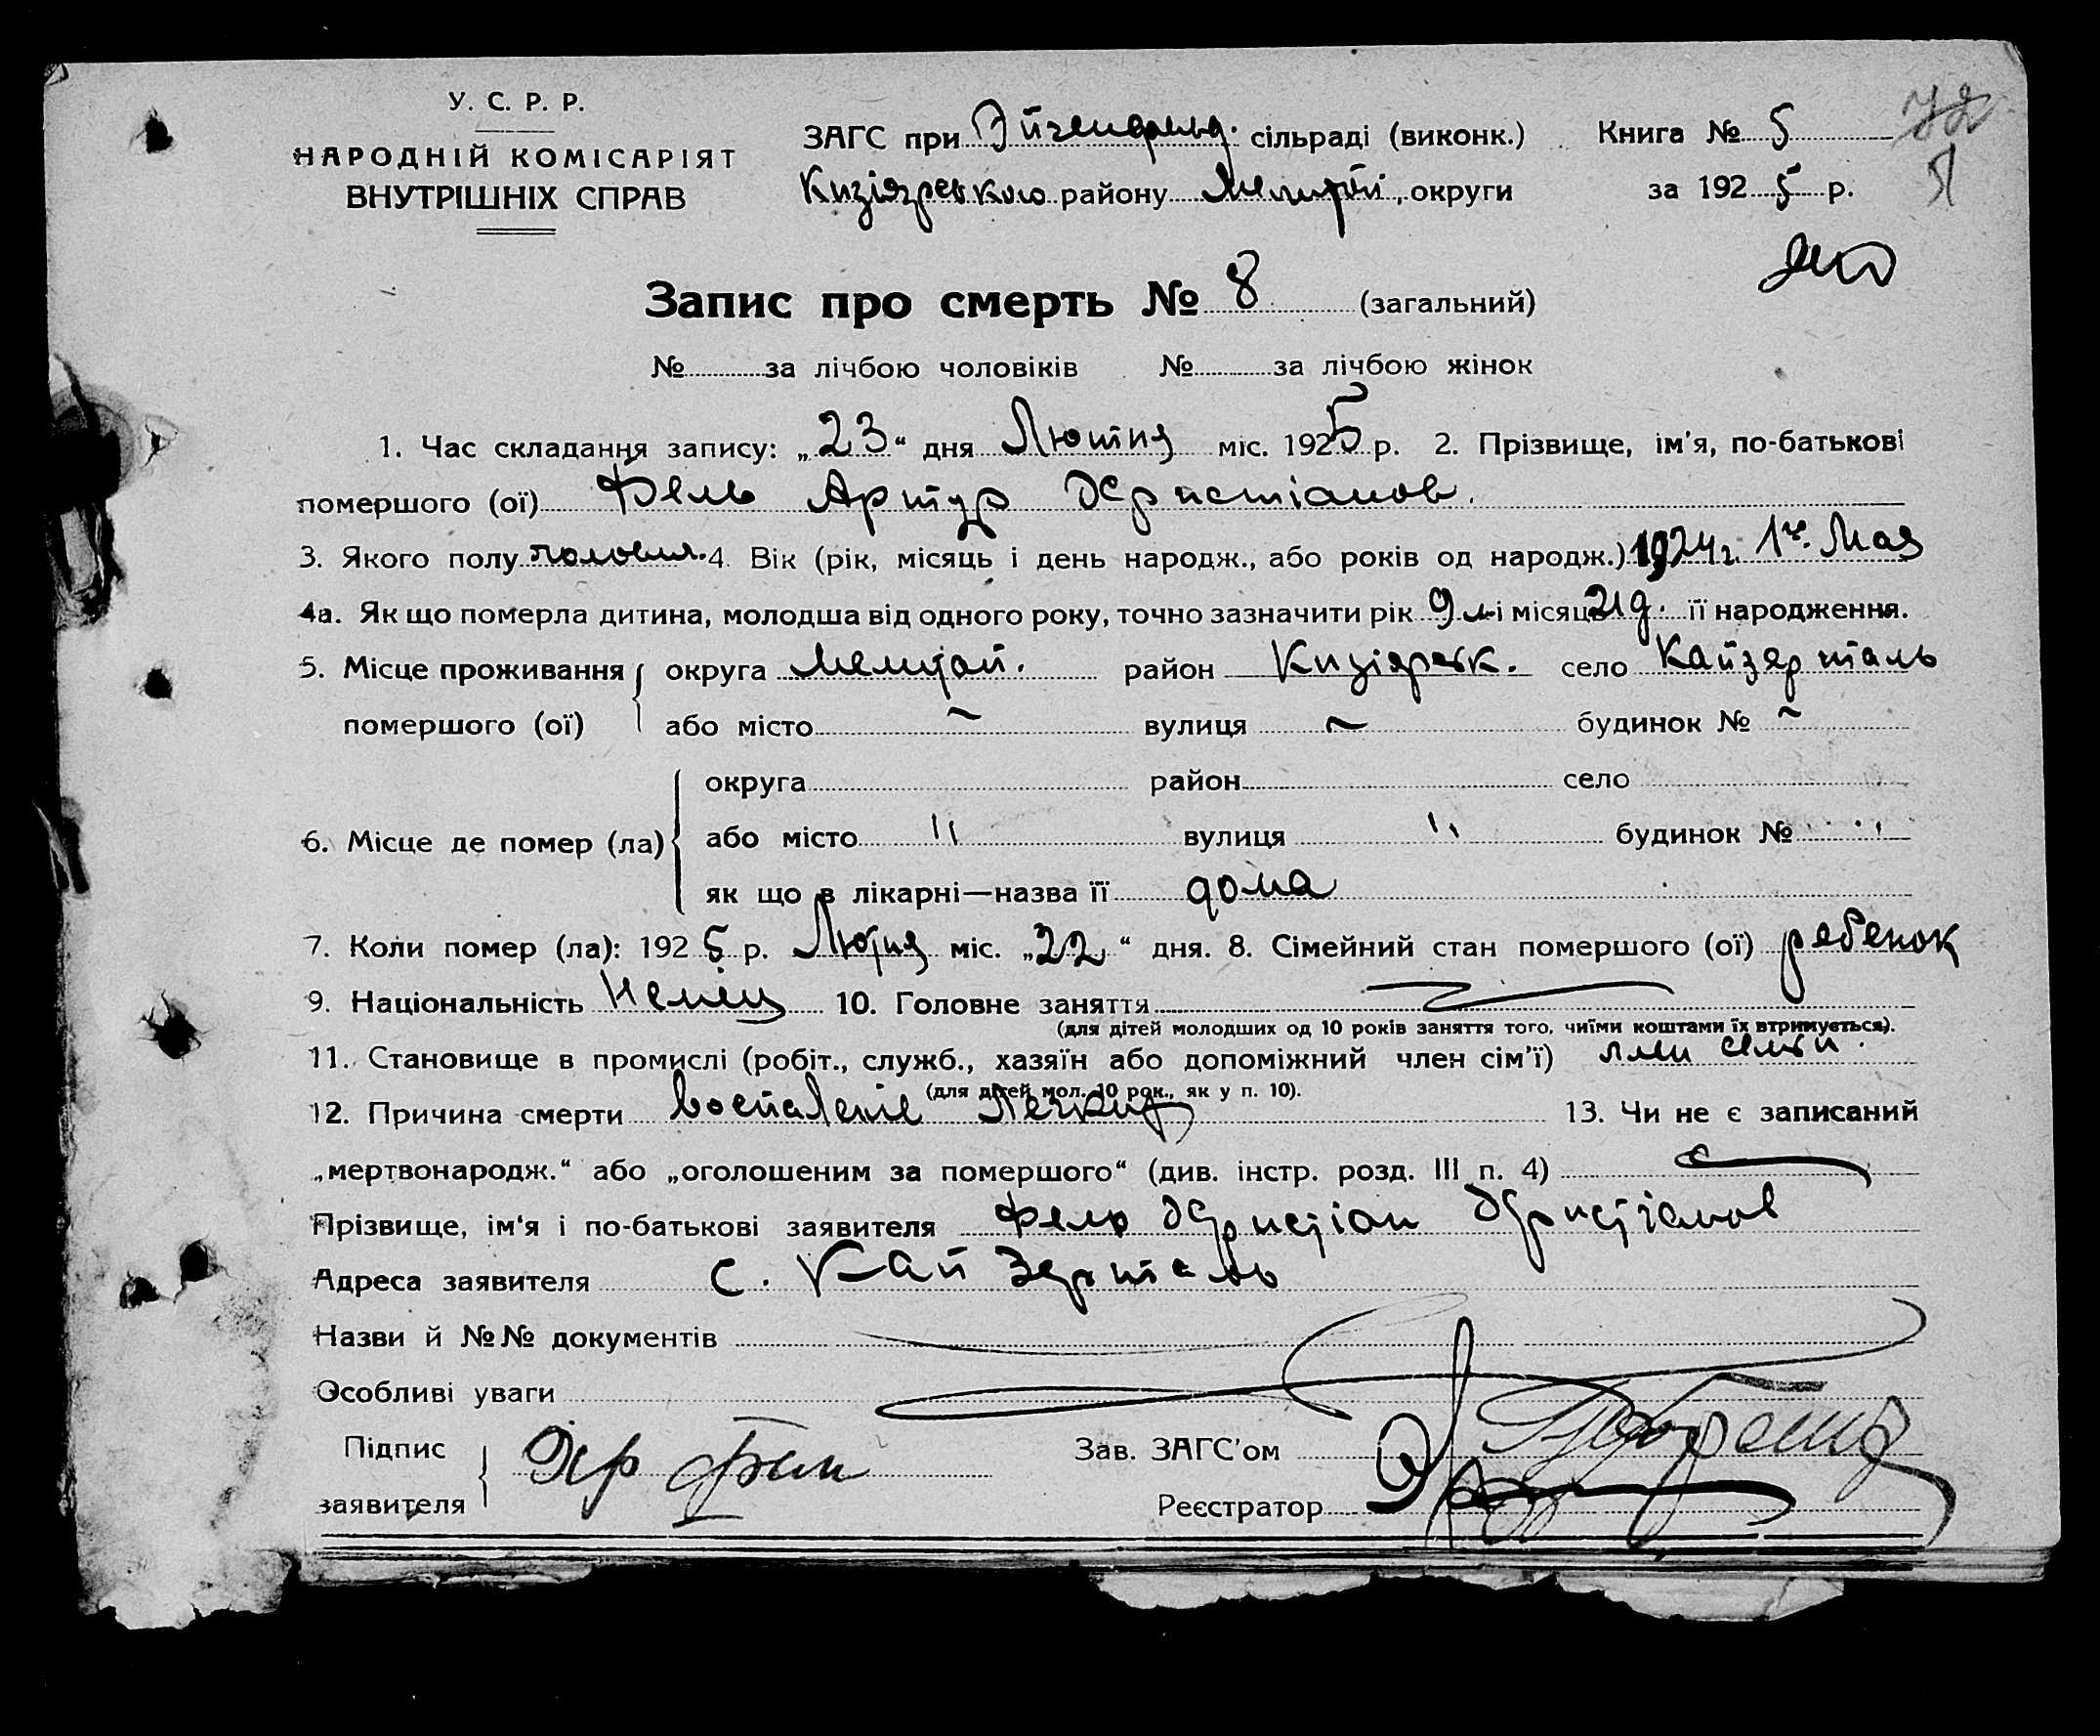 У. С. Р. Р.
НАРОДНІЙ КОМІСАРІЯТ
ВНУТРІШНІХ СПРАВ
ЗАГС при Эйгенфельд. сільраді (виконк.)
Кизіярського району Мелитоп. округи
Книга № 5
за 1925 р.
72
51
Запис про смерть № 8 (загальний)
№ за лічбою чоловіків № за лічбою жінок
1. Час складання запису: „23“ дня Лютня міс. 1925 р. 2. Прізвище, ім'я, по-батькові
помершого (ої) Фель Артур Христіанов.
3. Якого полу чоловіч. 4. Вік (рік, місяць і день народж., або років од народж.) 1924 г. 1го Мая
4а. Як що померла дитина, молодша від одного року, точно зазначити рік 9 м. і місяць 21 д. її народження.
5. Місце проживання округа Мелитоп. район Кизіярськ. село Кайзерталь
помершого (ої) або місто ~ вулиця ~ будинок № ~
округа район село
6. Місце де помер (ла) або місто " вулиця " будинок № "
як що в лікарні—назва її дома
7. Коли помер (ла): 1925 р. Лютня міс. „22“ дня. 8. Сімейний стан помершого (ої) ребенок
9. Національність Немец 10. Головне заняття
(для дітей молодших од 10 років заняття того, чиїми коштами їх втримується).
11. Становище в промислі (робіт., служб., хазяїн або допоміжний член сім'ї) член семьи.
(для дітей мол. 10 рок., як у п. 10).
12. Причина смерти Воспаленіе Легких 13. Чи не є записаний
„мертвонародж.“ або „оголошеним за помершого“ (див. інстр. розд. III п. 4)
Прізвище, ім'я і по-батькові заявителя Фель Христіан Христіанов
Адреса заявителя с. Кайзерталь
Назви й №№ документів
Особливі уваги
Підпис
заявителя Хр Фель
Зав. ЗАГС'ом
Реєстратор